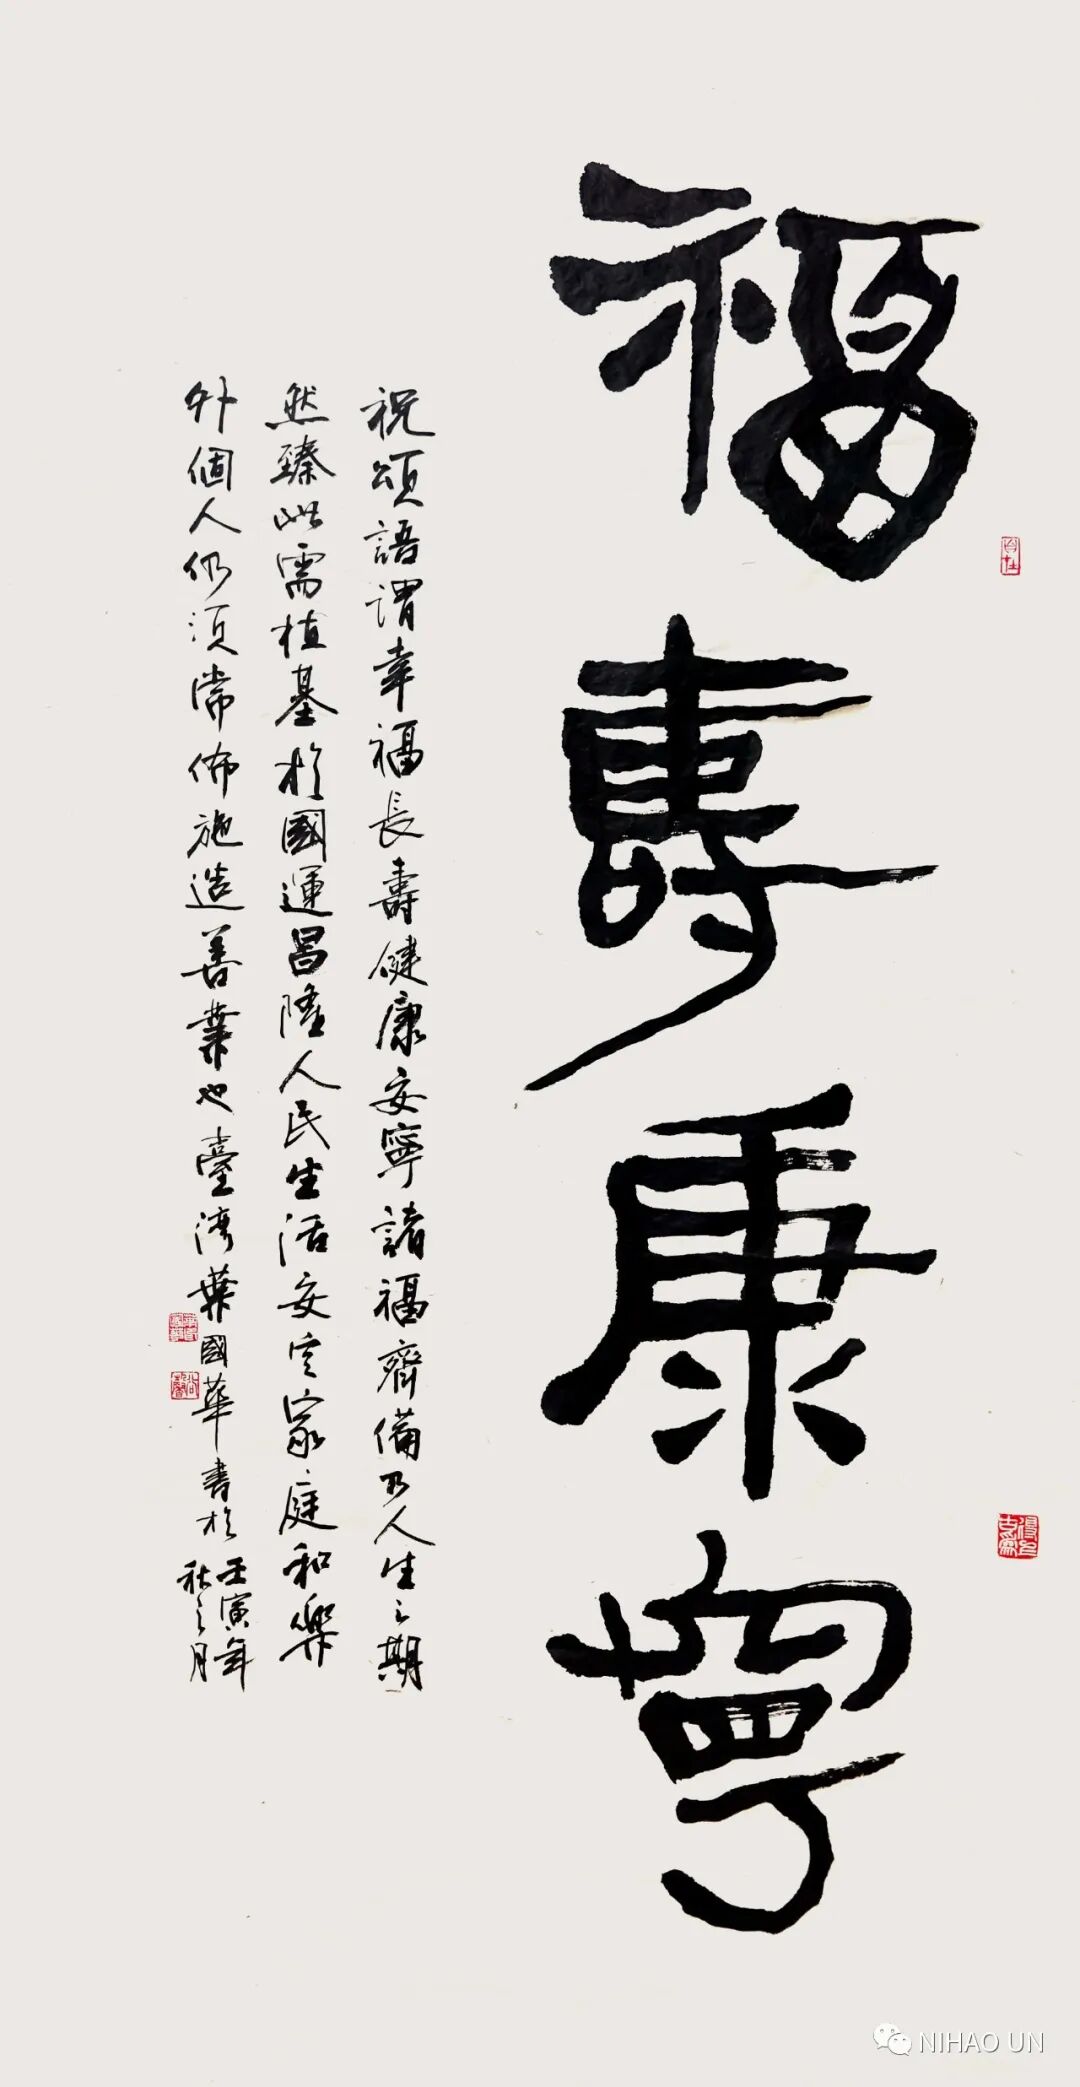 福壽康寧
祝頌語謂幸福長壽健康安寧諸福齊備乃人生之期
然臻此需植基於國運昌隆人民生活安定家庭和樂
外個人仍須常佈施造善業也臺湾葉國華書於
壬寅年
秋之月
NIHAO UN